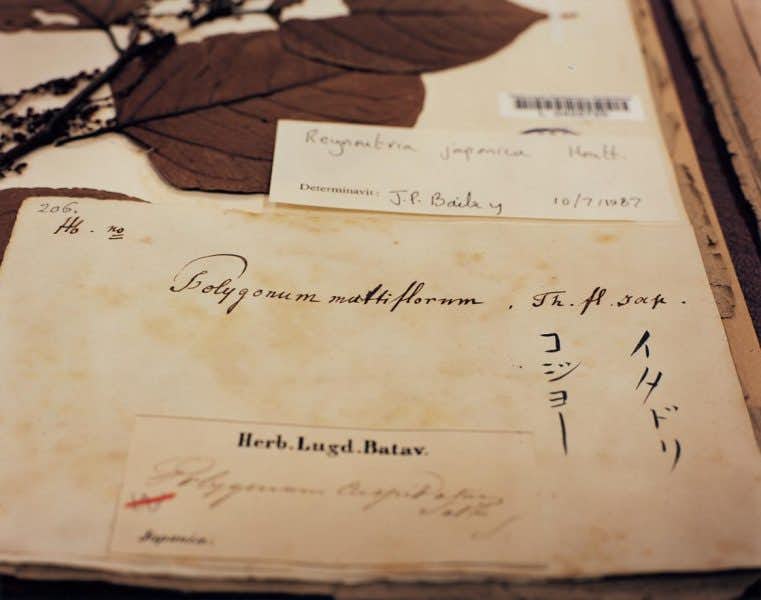 Reynoutria japonica Houtt.
Determinavit: J.P. Bailey 10/7/1987
206.
Hb. no
Polygonum multiflorum. Th. fl. Jap.
イタドリ
コジョー
Herb. Lugd. Batav.
Polygonum cuspidatum
Japonica.